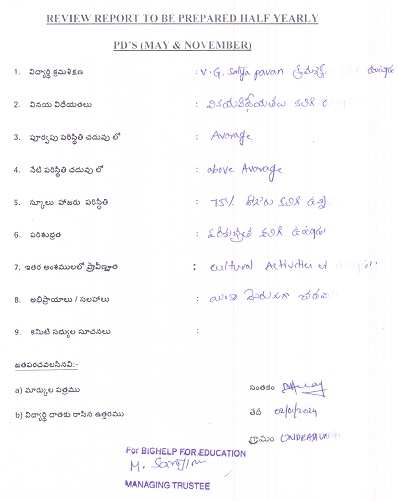 REVIEW REPORT TO BE PREPARED HALF YEARLY
PD'S (MAY & NOVEMBER)
1. విద్యార్థి క్రమశిక్షణ : V.G. Satya pavan
2. వినయ విధేయతలు : కలిగి
3. పూర్వపు పరిస్థితి చదువు లో : Average
4. నేటి పరిస్థితి చదువు లో : above Average
5. స్కూలు హాజరు పరిస్థితి : 75% కలిగి
6. పరిశుభ్రత : కలిగి
7. ఇతర అంశములలో ప్రావీణ్యత : cultural Activities
8. అభిప్రాయాలు / సలహాలు : ఇంకా
9. కమిటి సభ్యుల సూచనలు :
జతపరచవలసినవి:-
a) మార్కుల పత్రము సంతకం
b) విద్యార్థి దాతకు రాసిన ఉత్తరము తేది 02/01/2024
గ్రామం
For BIGHELP FOR EDUCATION
MANAGING TRUSTEE